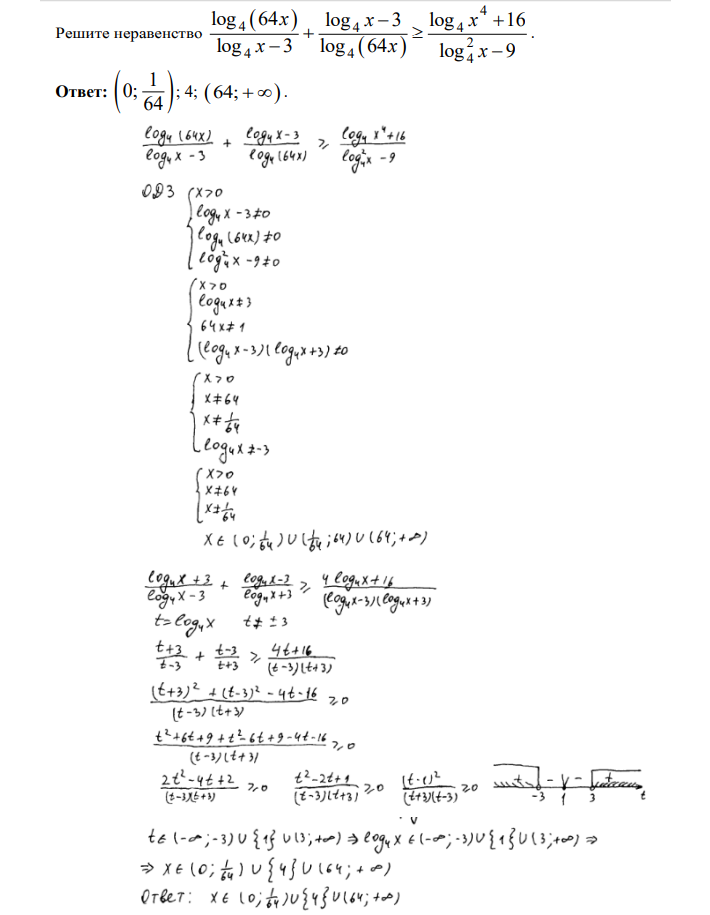 Решите неравенство log₄(64x)/(log₄x−3) + (log₄x−3)/log₄(64x) ≥ (log₄x⁴+16)/(log₄²x−9).
Ответ: (0; 1/64); 4; (64;+∞).
log₄(64x)/(log₄x−3) + (log₄x−3)/log₄(64x) ≥ (log₄x⁴+16)/(log₄²x−9)
ОДЗ { x>0
log₄x−3≠0
log₄(64x)≠0
log₄²x−9≠0
{ x>0
log₄x≠3
64x≠1
(log₄x−3)(log₄x+3)≠0
{ x>0
x≠64
x≠1/64
log₄x≠−3
{ x>0
x≠64
x≠1/64
x∈(0;1/64)∪(1/64;64)∪(64;+∞)
(log₄x+3)/(log₄x−3) + (log₄x−3)/(log₄x+3) ≥ (4log₄x+16)/((log₄x−3)(log₄x+3))
t=log₄x t≠±3
(t+3)/(t−3) + (t−3)/(t+3) ≥ (4t+16)/((t−3)(t+3))
((t+3)²+(t−3)²−4t−16)/((t−3)(t+3)) ≥0
(t²+6t+9+t²−6t+9−4t−16)/((t−3)(t+3)) ≥0
(2t²−4t+2)/((t−3)(t+3)) ≥0 (t²−2t+1)/((t−3)(t+3)) ≥0 (t−1)²/((t+3)(t−3)) ≥0 + − − + −3 1 3 t
t∈(−∞;−3)∪{1}∪(3;+∞)⇒log₄x∈(−∞;−3)∪{1}∪(3;+∞)⇒
⇒x∈(0;1/64)∪{4}∪(64;+∞)
Ответ: x∈(0;1/64)∪{4}∪(64;+∞)